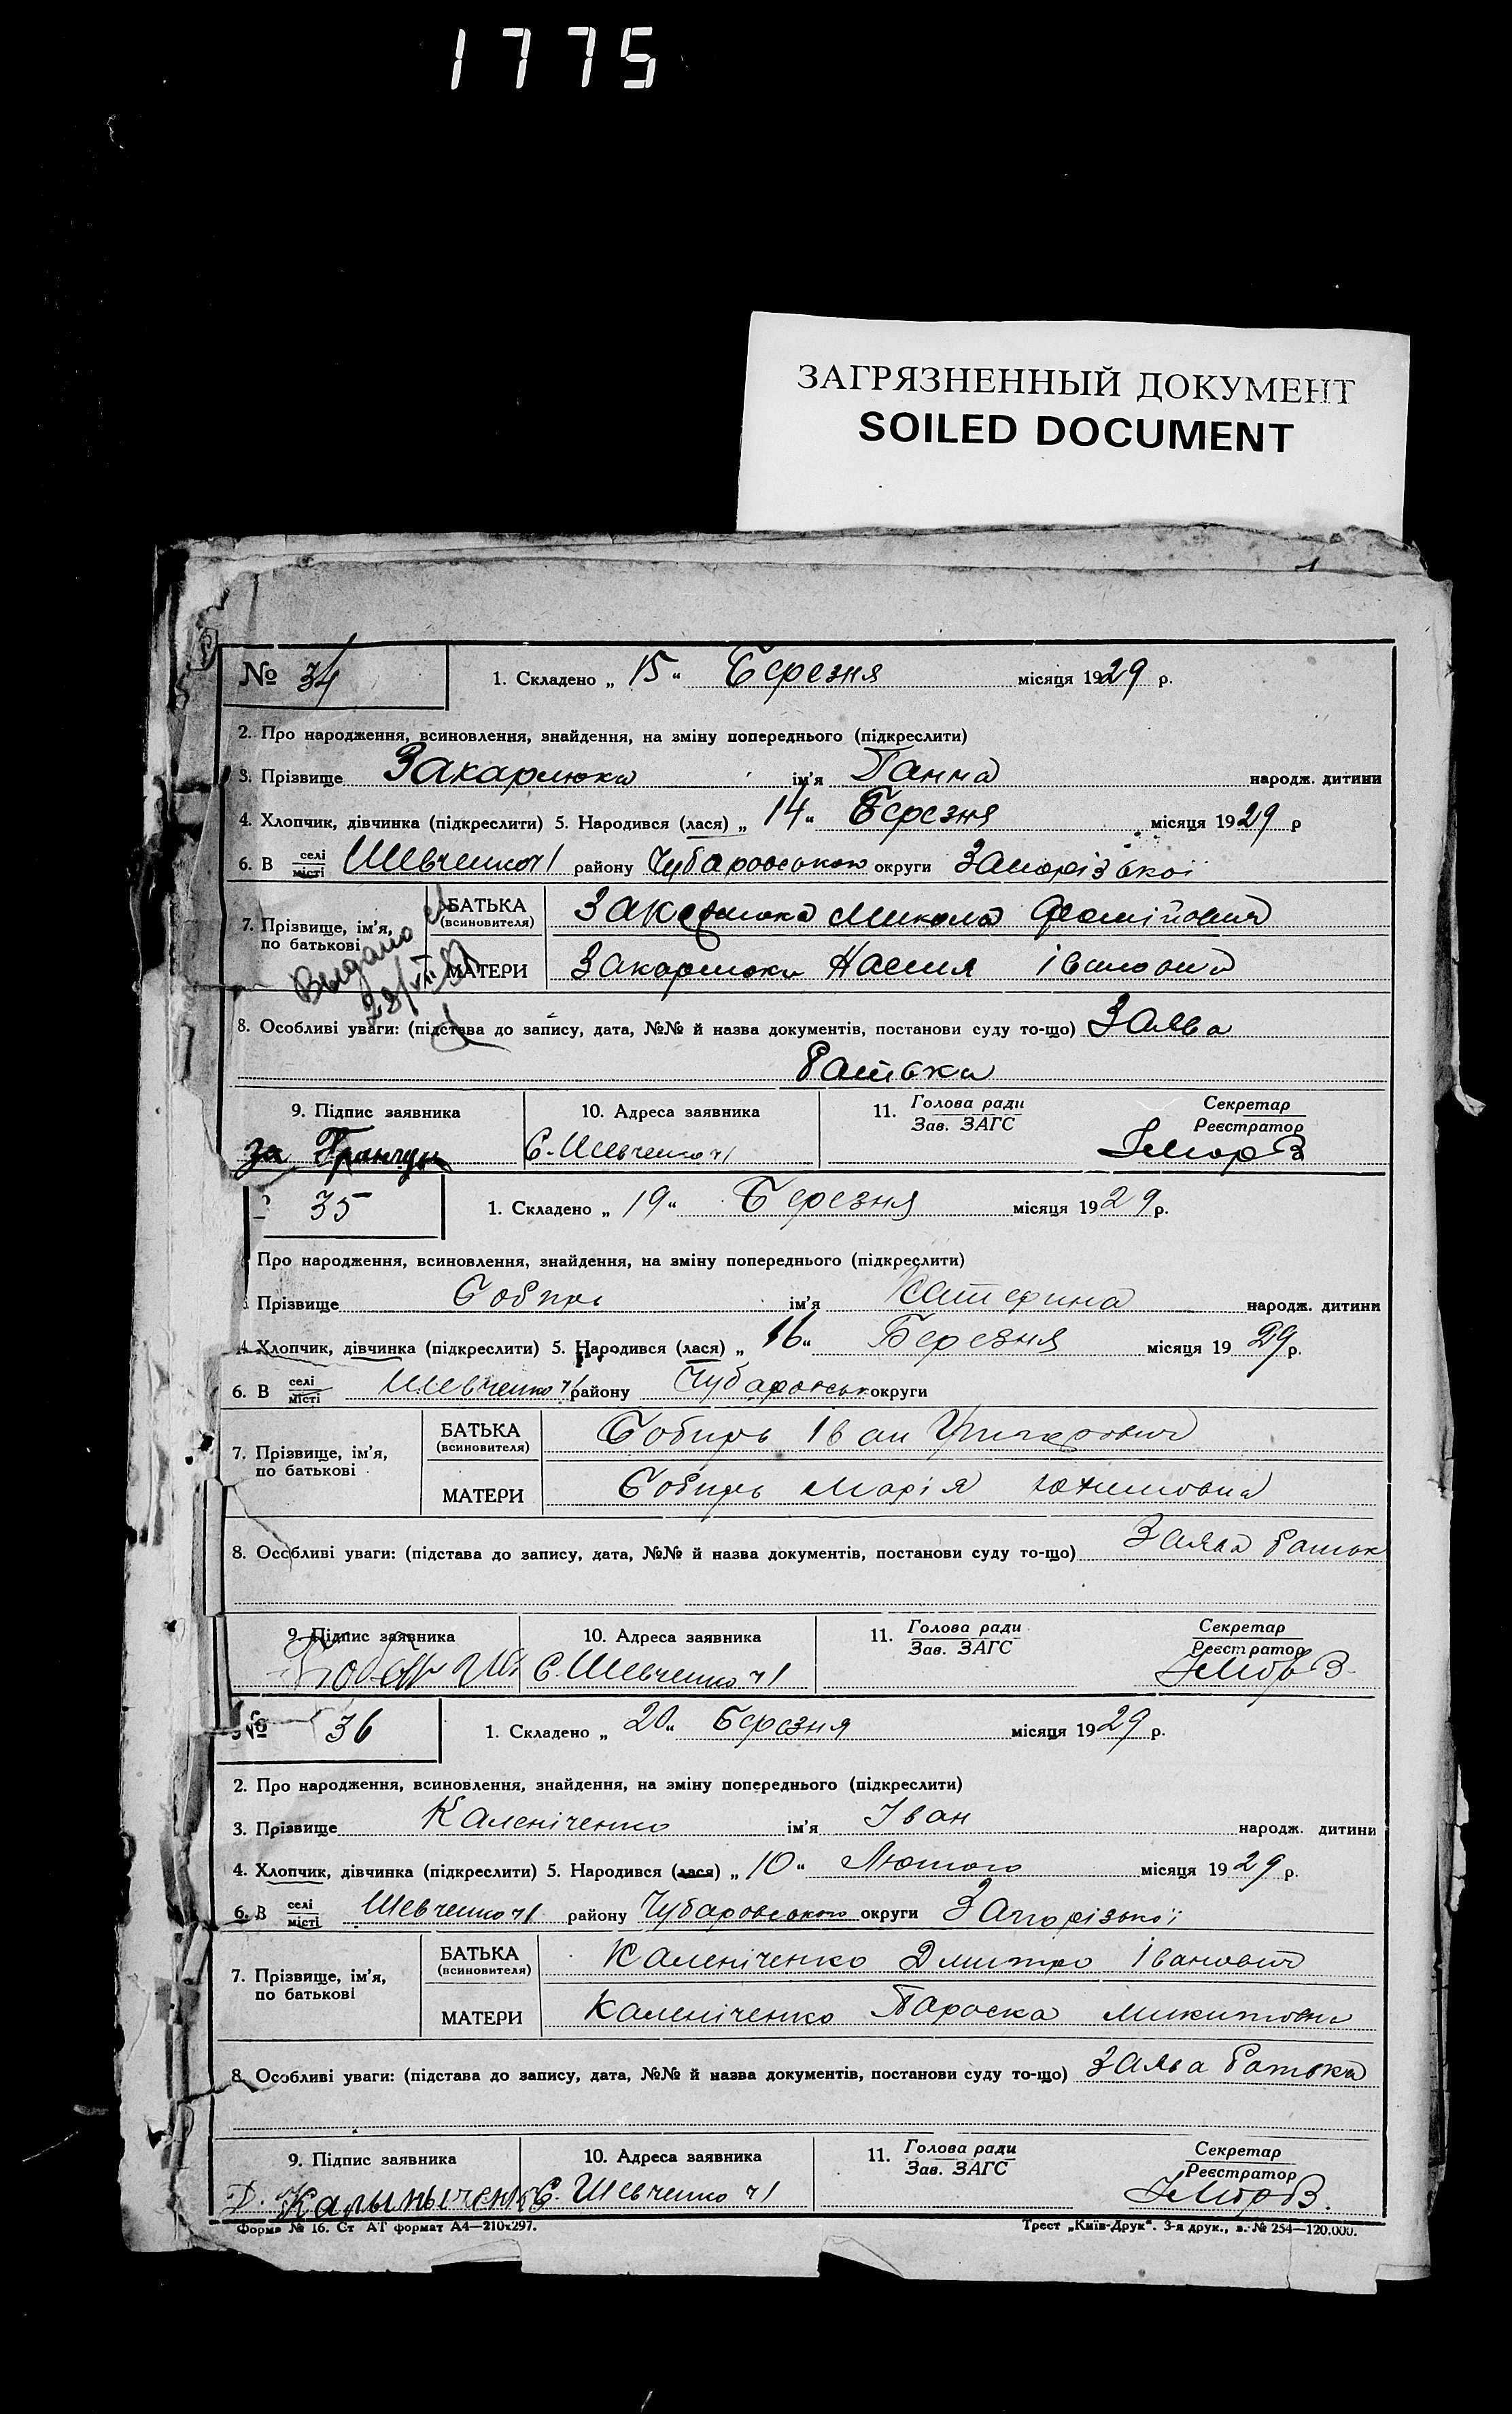 1775
ЗАГРЯЗНЕННЫЙ ДОКУМЕНТ
SOILED DOCUMENT
№ 34
1. Складено „ 15 “ Березня місяця 1929 р.
2. Про народження, всиновлення, знайдення, на зміну попереднього (підкреслити)
3. Прізвище Закарлюка ім’я Ганна народж. дитини
4. Хлопчик, дівчинка (підкреслити) 5. Народився (лася) „ 14 “ Березня місяця 1929 р
6. В селі місті Шевченко ч1 району Чубаровського округи Запорізької
7. Прізвище, ім’я, по батькові
БАТЬКА (всиновителя) Закарлюка Микола
МАТЕРИ Закарлюка Івановна
Выдано
8. Особливі уваги: (підстава до запису, дата, №№ й назва документів, постанови суду то-що) Заява
батька
9. Підпис заявника 10. Адреса заявника 11. Голова ради Зав. ЗАГС Секретар Реєстратор
за С. Шевченко ч1
35
1. Складено „ 19 “ Березня місяця 1929 р.
Про народження, всиновлення, знайдення, на зміну попереднього (підкреслити)
Прізвище Собирь ім’я Катерина народж. дитини
4. Хлопчик, дівчинка (підкреслити) 5. Народився (лася) „ 16 “ Березня місяця 1929 р.
6. В селі місті Шевченко ч1 району Чубаровськ округи
7. Прізвище, ім’я, по батькові
БАТЬКА (всиновителя) Собирь Іван Григорович
МАТЕРИ Собирь Марія Юхимовна
8. Особливі уваги: (підстава до запису, дата, №№ й назва документів, постанови суду то-що) Заява батьк
9. Підпис заявника 10. Адреса заявника 11. Голова ради Зав. ЗАГС Секретар Реєстратор
С. Шевченко ч1
№ 36
1. Складено „ 20 “ Березня місяця 1929 р.
2. Про народження, всиновлення, знайдення, на зміну попереднього (підкреслити)
3. Прізвище Каленіченко ім’я Іван народж. дитини
4. Хлопчик, дівчинка (підкреслити) 5. Народився (лася) „ 10 “ Лютого місяця 1929 р.
6. В селі місті Шевченко ч1 району Чубаровського округи Запорізької
7. Прізвище, ім’я, по батькові
БАТЬКА (всиновителя) Каленіченко Дмитро Іванович
МАТЕРИ Каленіченко Параска Микитовна
8. Особливі уваги: (підстава до запису, дата, №№ й назва документів, постанови суду то-що) Заява батька
9. Підпис заявника 10. Адреса заявника 11. Голова ради Зав. ЗАГС Секретар Реєстратор
Д. Калыныченко С. Шевченко ч1
Форма № 16. Ст АТ формат А4—210х297. Трест „Київ-Друк“. 3-я друк., з. № 254—120.000.